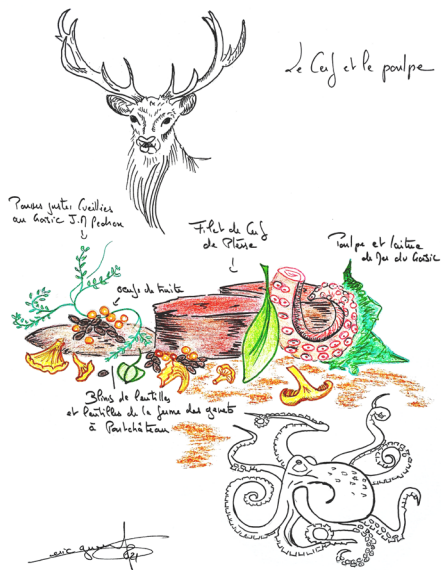 Le Cerf et le poulpe
Pousses justes Cueillies
au Croisic J.M Pedron
Filet de Cerf
de Plessé
Poulpe et laitue
de Mer du Croisic
oeufs de truite
Blinis de lentilles
et lentilles de la ferme des
à Pontchâteau
eric